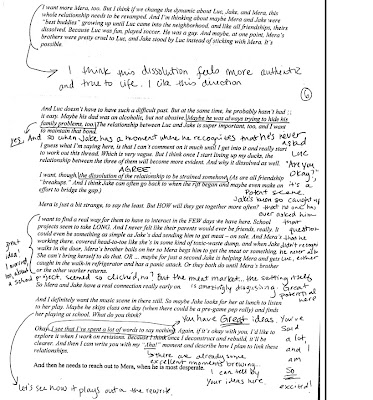 I want more Mera, too. But I think if we change the dynamic about Luc, Jake, and Mera, this
whole relationship needs to be revamped. And I'm thinking about maybe Mera and Jake were
"best buddies" growing up until Luc came into the neighborhood, and like all friendships, theirs
dissolved. Because Luc was fun, played soccer. He was a guy. And maybe, at one point, Mera's
brothers were pretty cruel to Luc, and Jake stood by Luc instead of sticking with Mera. It's
possible.
I think this dissolution feels more authentic
and true to life. I like this direction
6
And Luc doesn't have to have such a difficult past. But at the same time, he probably hasn't had
it easy. Maybe his dad was an alcoholic, but not abusive. Maybe he was always trying to hide his
family problems, too. The relationship between Luc and Jake is super important, too, and I want
to maintain that bond.
yes
And so when Jake has a moment where he recognizes that he's never asked Luc "Are you okay?" it's a potent scene.
Jake's been so caught up
that no one has ever asked him that question
I guess what I'm saying here, is that I can't comment on it much until I get into it and really start
to work out this thread. Which is very vague. But I think once I start lining up my ducks, the
relationship between the three of them will become more evident. And why it dissolved as well.
AGREE
I want, though, the dissolution of the relationship to be strained somehow. (As are all friendship
"breakups." And I think Jake can often go back to when the rift began and maybe even make an
effort to bridge the gap.)
Mera is just a bit strange, to say the least. But HOW will they get together more often?
I want to find a real way for them to have to interact in the FEW days we have here. School
projects seem to take LONG. And I never felt like their parents would ever be friends, really. It
could even be something as simple as Jake's dad sending him to get meat – on sale. And Mera's
working there, covered head-to-toe like she's in some kind of toxic-waste dump, and when Jake
walks in the door, Mera's brother bails on her so Mera begs him to get the meat or something
She can't bring herself to do that. OR ... maybe for just a second Jake is helping Mera and gets
caught in the walk in refrigerator and has a panic attack. Or they both do until Mera's brother
or the other worker returns.
great idea
a school project, sound so cliche'd, no? But the meat market... the setting itself,
is amazingly disgusting. Great potential here
So Mera and Jake have a real connection really early on.
And I definitely want the music scene in there still. So maybe Jake looks for her at lunch to listen
to her play. Maybe he skips class one day (when there could be a pre-game pep rally) and finds
her playing at school. What do you think?
you have GREAT ideas.
You've said a lot, and I am So excited!
Okay, I see that I've spent a lot of words to say nothing. Again, if it's okay with you, I'd like to
explore it when I work on revisions. Because I think once I deconstruct and rebuild, it'll be
clearer. And then I can write you with my "Aha!" moment and describe how I plan to link these
relationships.
there are already some
excellent moments brewing.
I can tell by
your ideas here.
And then he needs to reach out to Mera, when he is most desperate.
let's see how it plays out in the rewrite